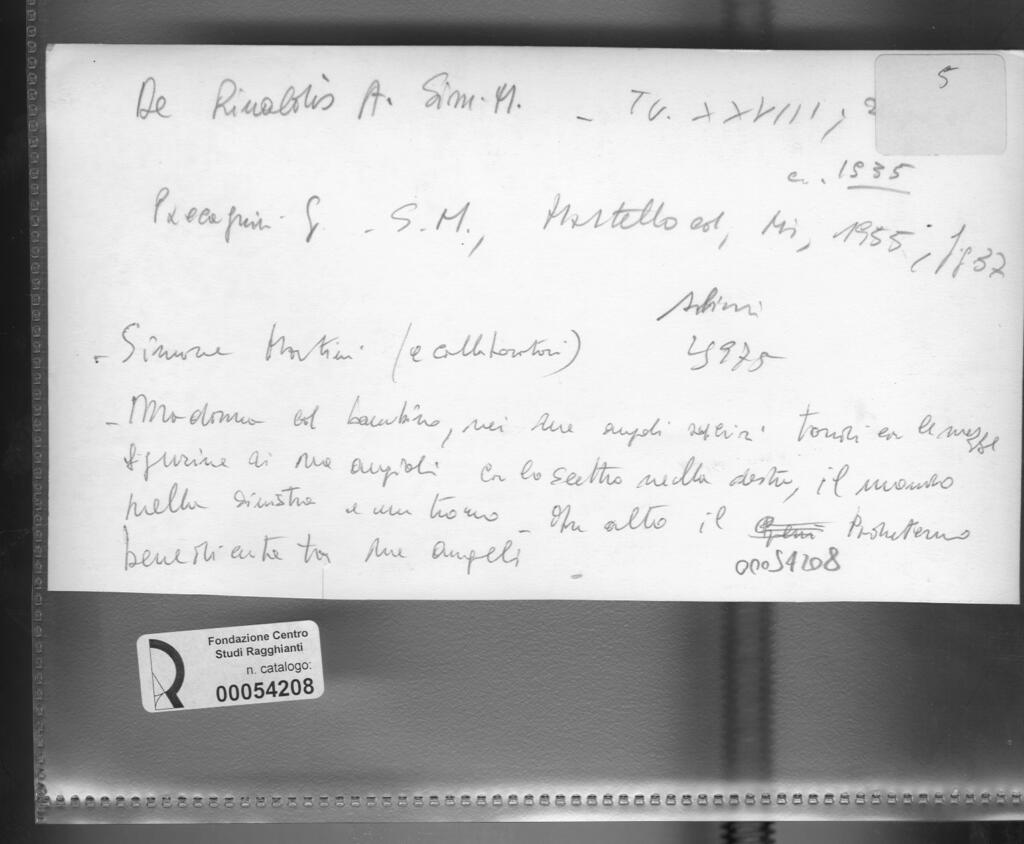 5
De Rinaldis A. Sim. M. - Tv. XXVIII, 2
c. 1935
Paccagnini G. - S. M., Martello ed, Mi, 1955, fg 37
Alinari
- Simone Martini (e collaboratori)
- Madonna col bambino, nei due angoli tondi con le mezze
figurine di due angioli con lo scettro nella destra, il mondo
nella sinistra e un trono - In alto il Padreterno
benedicente tra due angeli
00054208
Fondazione Centro
Studi Ragghianti
n. catalogo:
00054208